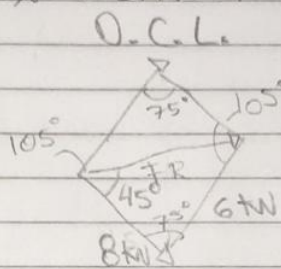 D.C.L.
75°
105°
105°
FR
45°
6 kN
75°
8 kN